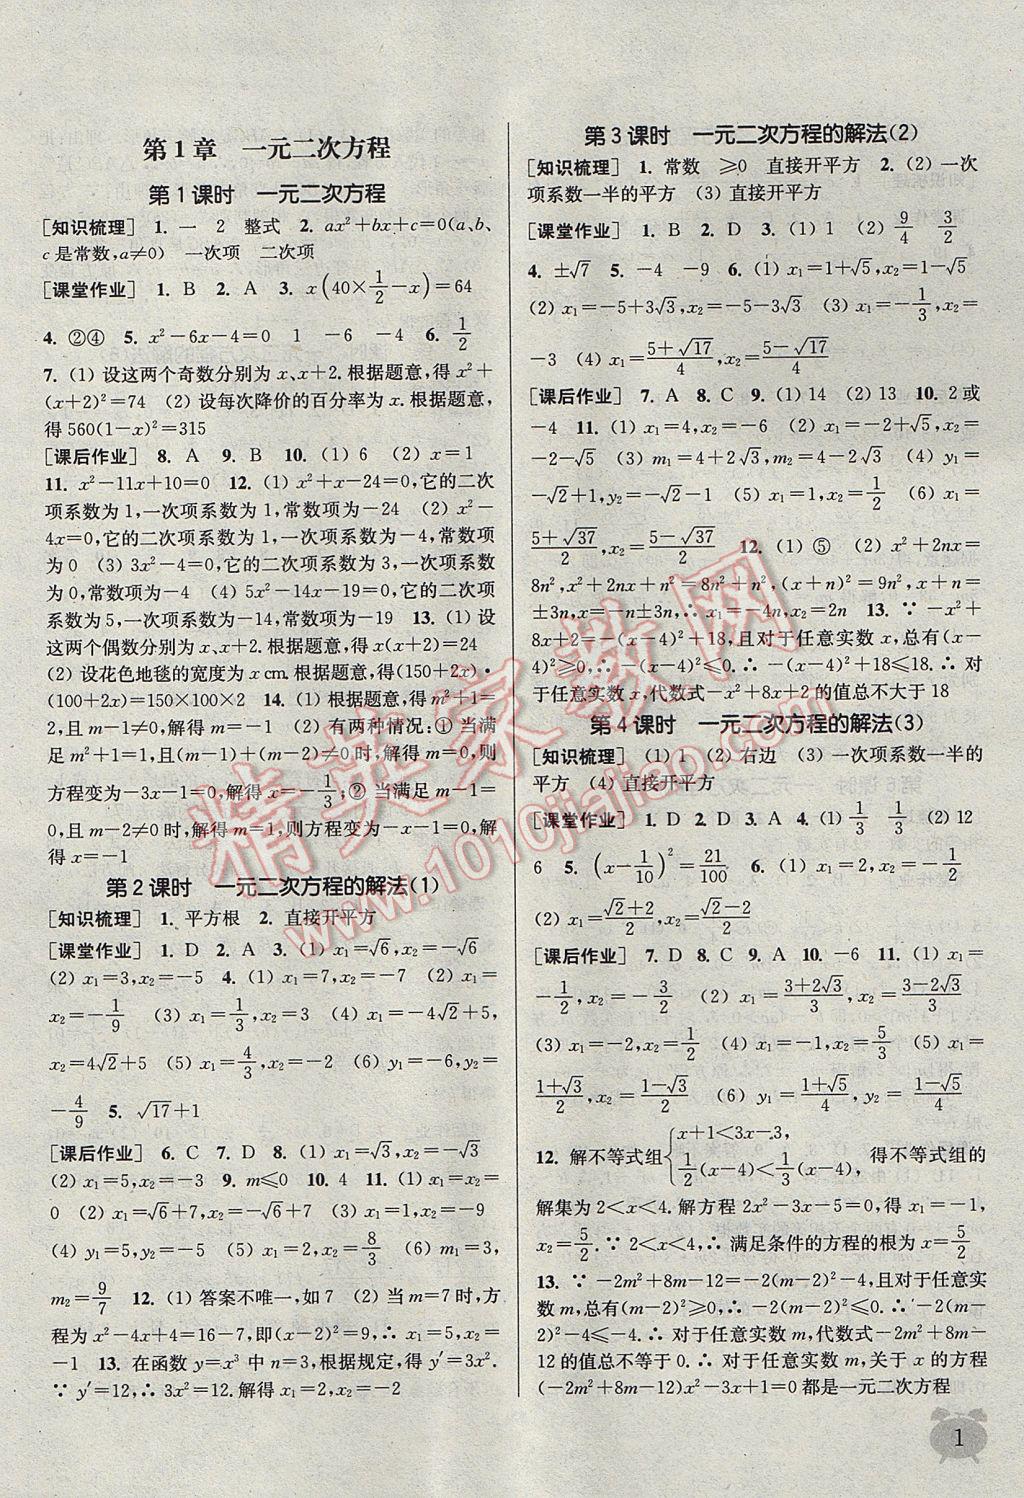 第1章　一元二次方程
第1课时　一元二次方程
[知识梳理] 1. 一　2　整式　2. ax²+bx+c=0(a、b、
c是常数,a≠0)　一次项　二次项
[课堂作业] 1. B　2. A　3. x(40×1/2-x)=64
4. ②④　5. x²-6x-4=0　1　-6　-4　6. 1/2
7. (1) 设这两个奇数分别为x、x+2. 根据题意,得x²+
(x+2)²=74　(2) 设每次降价的百分率为x. 根据题意,
得560(1-x)²=315
[课后作业] 8. A　9. B　10. (1) 6　(2) x=1
11. x²-11x+10=0　12. (1) x²+x-24=0,它的二次
项系数为1,一次项系数为1,常数项为-24　(2) x²-
4x=0,它的二次项系数为1,一次项系数为-4,常数项
为0　(3) 3x²-4=0,它的二次项系数为3,一次项系数
为0,常数项为-4　(4) 5x²-14x-19=0,它的二次项
系数为5,一次项系数为-14,常数项为-19　13. (1) 设
这两个偶数分别为x、x+2. 根据题意,得x(x+2)=24
(2) 设花色地毯的宽度为x cm. 根据题意,得(150+2x)·
(100+2x)=150×100×2　14. (1) 根据题意,得m²+1=
2,且m-1≠0,解得m=-1　(2) 有两种情况:① 当满
足m²+1=1,且(m-1)+(m-2)≠0时,解得m=0,则
方程变为-3x-1=0,解得x=-1/3;② 当满足m-1=0,
且m-2≠0时,解得m=1,则方程变为-x-1=0,解
得x=-1
第2课时　一元二次方程的解法(1)
[知识梳理] 1. 平方根　2. 直接开平方
[课堂作业] 1. D　2. A　3. (1) x₁=√6,x₂=-√6
(2) x₁=3,x₂=-5　4. (1) x₁=7,x₂=-7　(2) x₁=1,
x₂=-1/9　(3) x₁=1/3,x₂=3　(4) x₁=-4√2+5,
x₂=4√2+5　(5) x₁=4/3,x₂=-2　(6) y₁=-6,y₂=
-4/9　5. √17+1
[课后作业] 6. C　7. D　8. (1) x₁=√3,x₂=-√3
(2) x₁=5,x₂=-3　9. m≤0　10. 4　11. (1) x₁=x₂=
0　(2) x₁=√6+7,x₂=-√6+7　(3) x₁=3,x₂=-9
(4) y₁=5,y₂=-5　(5) x₁=2,x₂=8/3　(6) m₁=3,
m₂=9/7　12. (1) 答案不唯一,如7　(2) 当m=7时,方
程为x²-4x+4=16-7,即(x-2)²=9,∴ x₁=5,x₂=
-1　13. 在函数y=x³中n=3,根据规定,得y′=3x².
∵ y′=12,∴ 3x²=12. 解得x₁=2,x₂=-2
第3课时　一元二次方程的解法(2)
[知识梳理] 1. 常数　≥0　直接开平方　2. (2) 一次
项系数一半的平方　(3) 直接开平方
[课堂作业] 1. B　2. D　3. (1) 1　(2) 9/4　3/2
4. ±√7　5. -4　-9　6. (1) x₁=1+√5,x₂=1-√5
(2) x₁=-5+3√3,x₂=-5-3√3　(3) x₁=-1/3,x₂=
-3　(4) x₁=(5+√17)/4,x₂=(5-√17)/4
[课后作业] 7. A　8. C　9. (1) 14　(2) 13　10. 2或
-4　11. (1) x₁=4,x₂=-6　(2) x₁=-2+√5,x₂=
-2-√5　(3) m₁=4+2√3,m₂=4-2√3　(4) y₁=
-√2+1,y₂=-√2-1　(5) x₁=-1,x₂=1/2　(6) x₁=
(5+√37)/2,x₂=(5-√37)/2　12. (1) ⑤　(2) x²+2nx=
8n²,x²+2nx+n²=8n²+n²,(x+n)²=9n²,x+n=
±3n,x=-n±3n,∴ x₁=-4n,x₂=2n　13. ∵ -x²+
8x+2=-(x-4)²+18,且对于任意实数x,总有(x-
4)²≥0,∴ -(x-4)²≤0.∴ -(x-4)²+18≤18.∴ 对
于任意实数x,代数式-x²+8x+2的值总不大于18
第4课时　一元二次方程的解法(3)
[知识梳理] (1) 1　(2) 右边　(3) 一次项系数一半的
平方　(4) 直接开平方
[课堂作业] 1. D　2. D　3. A　4. (1) 1/3　1/3　(2) 12
6　5. (x-1/10)²=21/100　6. (1) x₁=2,x₂=-1/2
(2) x₁=(√2+2)/2,x₂=(√2-2)/2
[课后作业] 7. D　8. C　9. A　10. -6　11. (1) x₁=
-1/2,x₂=-3/2　(2) x₁=(3+2√3)/3,x₂=(3-2√3)/3
(3) x₁=-2,x₂=1/2　(4) x₁=-1,x₂=5/6　(5) x₁=
(1+√3)/2,x₂=(1-√3)/2　(6) y₁=(1+√5)/4,y₂=(1-√5)/4
12. 解不等式组{x+1<3x-3, 1/2(x-4)<1/3(x-4), 得不等式组的
解集为2<x<4. 解方程2x²-3x-5=0,得x₁=-1,
x₂=5/2.∵ 2<x<4,∴ 满足条件的方程的根为x=5/2
13. ∵ -2m²+8m-12=-2(m-2)²-4,且对于任意
实数m,总有(m-2)²≥0,∴ -2(m-2)²≤0.∴ -2(m-
2)²-4≤-4.∴ 对于任意实数m,代数式-2m²+8m-
12的值总不等于0.∴ 对于任意实数m,关于x的方程
(-2m²+8m-12)x²-3x+1=0都是一元二次方程
1
精英家教网
www.1010jiajiao.com